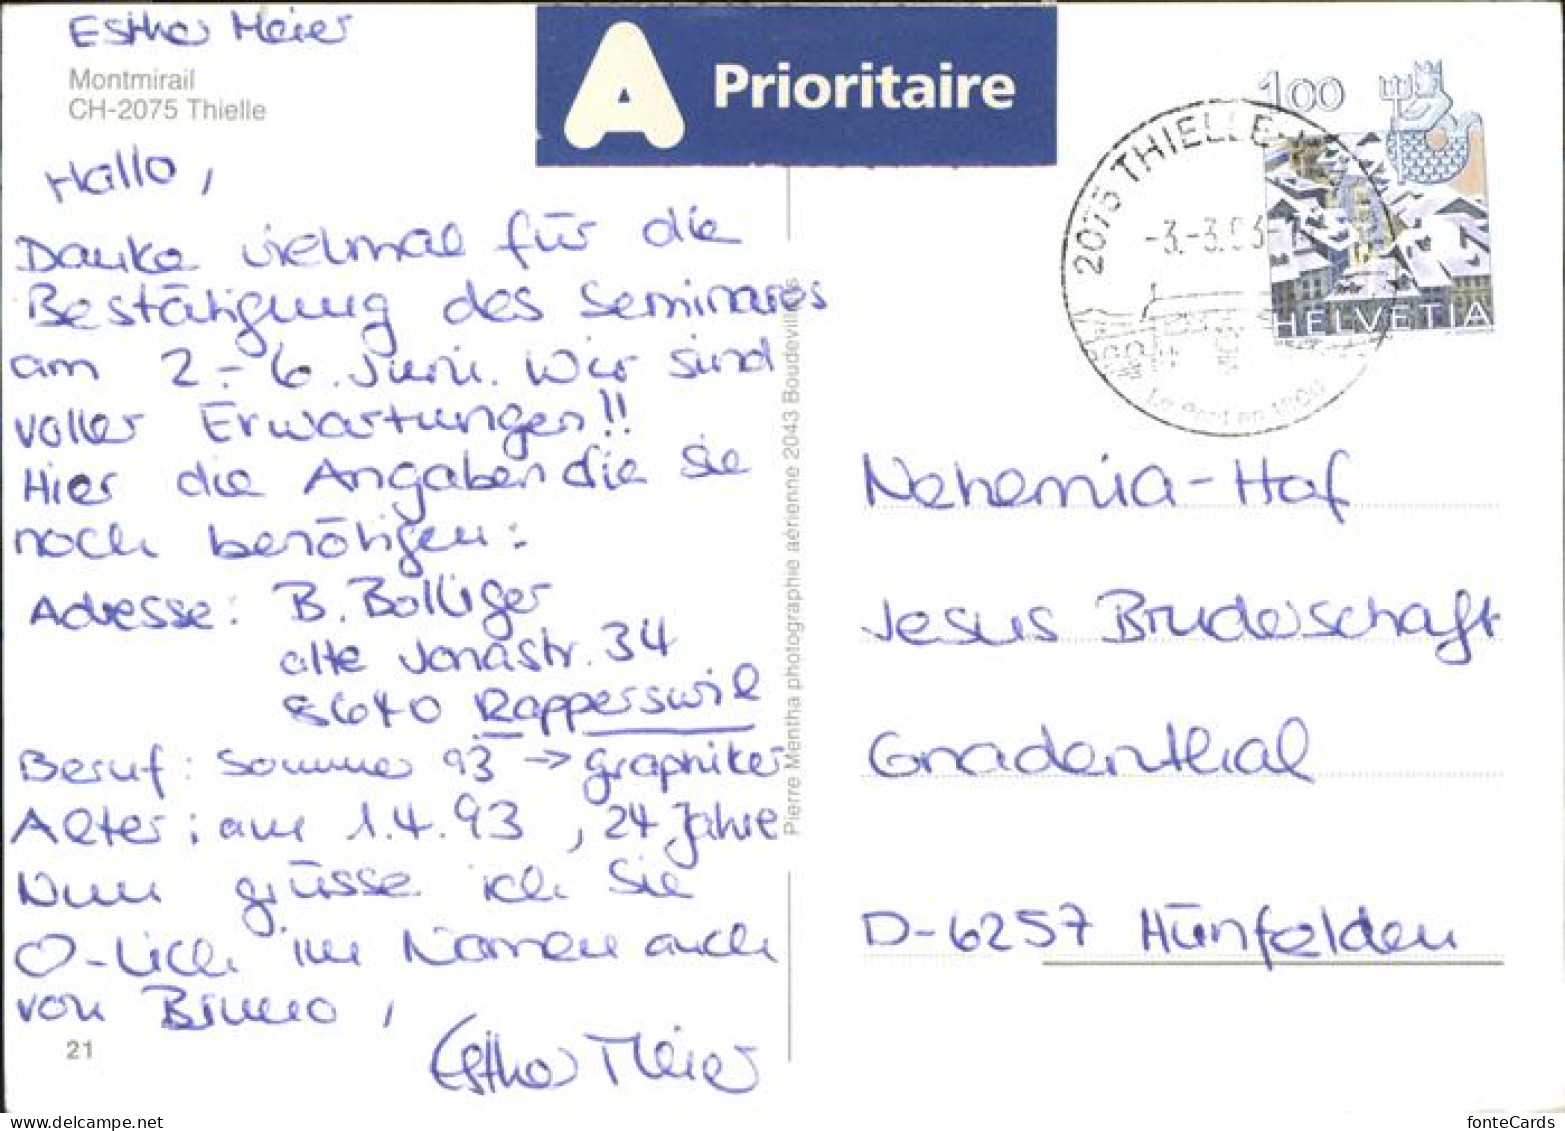 Esther Meier
Montmirail
CH-2075 Thielle
Hallo,
Danke vielmal für die
Bestätigung des Seminares
am 2.-6. Juni. Wir sind
voller Erwartungen!!
Hier die Angaben die sie
noch benötigen:
Adresse: B. Bolliger
alte Jonastr. 34
8640 Rapperswil
Beruf: Sommer 93 → Graphiker
Alter: am 1.4.93, 24 Jahre
Nun grüsse ich Sie
O-lich im Namen auch
von Bruno,
Esther Meier
21
Pierre Mentha photographie aérienne 2043 Boudevilliers
A Prioritaire
2075 THIELLE
-3.-3.93
1.00
HELVETIA
Nehemia-Hof
Jesus Bruderschaft
Gnadenthal
D-6257 Hünfelden
fonteCards